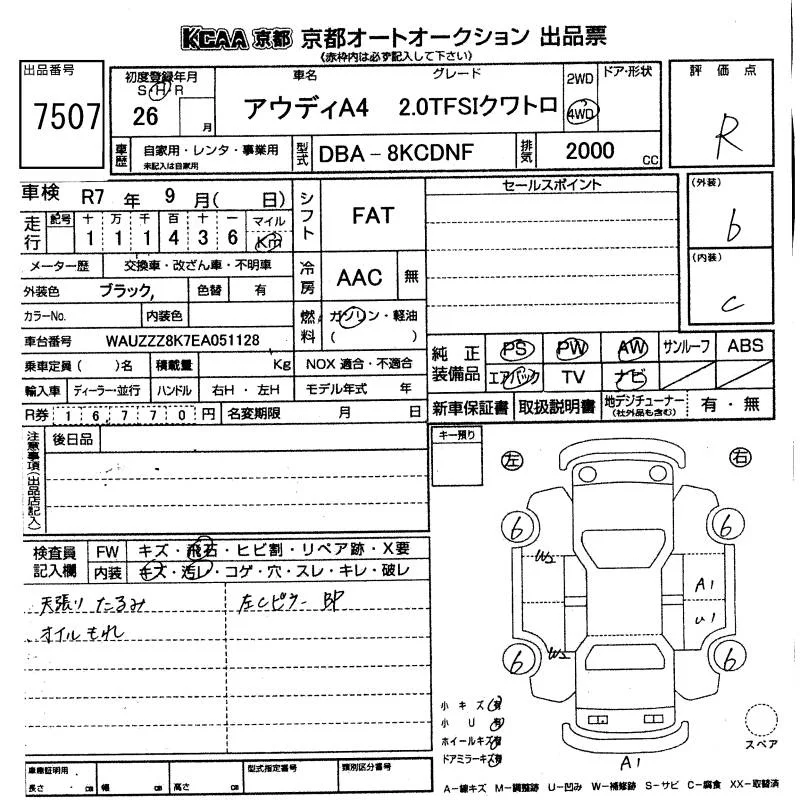 KCAA 京都 京都オートオークション 出品票
(赤枠内は必ず記入して下さい)
出品番号
7507
初度登録年月
S H R
26 月
車名 グレード
アウディA4 2.0TFSIクワトロ
2WD
4WD
ドア・形状
評価点
R
車歴
自家用・レンタ・事業用
未記入は自家用
型式
DBA-8KCDNF
排気
2000 cc
車検 R7 年 9 月( 日)
シフト
FAT
セールスポイント
(外装)
b
走行
記号 十 万 千 百 十 一 マイル
1 1 1 4 3 6 Km
冷房
AAC 無
(内装)
c
メーター歴 交換車・改ざん車・不明車
外装色 ブラック, 色替 有
カラーNo. 内装色
燃料
ガソリン・軽油
( )
車台番号 WAUZZZ8K7EA051128
乗車定員( )名 積載量 Kg
NOX 適合・不適合
純正装備品
PS PW AW サンルーフ ABS
エアバック TV ナビ
輸入車 ディーラー・並行 ハンドル 右H・左H モデル年式 年
新車保証書 取扱説明書 地デジチューナー 有・無
(社外品も含む)
R券 16,770円 名変期限 月 日
注意事項(出品店記入)
後日品
キー預り
左 右
検査員記入欄
FW キズ・飛石・ヒビ割・リペア跡・X要
内装 キズ・汚レ・コゲ・穴・スレ・キレ・破レ
天張り たるみ 左Cピラー BP
オイルもれ
6 6
W2 A1
U1
W2
6 6
小キズ 有
小U 有
ホイールキズ 有
ドアミラーキズ 有
A1
スペア
車庫証明用
長さ . cm 幅 cm 高さ cm
型式指定番号
類別区分番号
A-線キズ M-調整跡 U-凹み W-補修跡 S-サビ C-腐食 XX-取替済